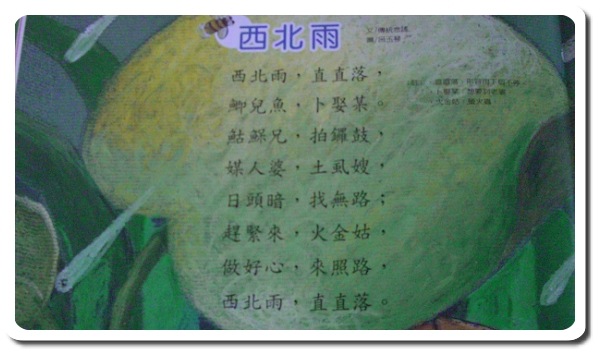 西北雨
西北雨,直直落,
鯽兒魚,卜娶某。
鮎鮘兄,拍鑼鼓,
媒人婆,土虱嫂,
日頭暗,找無路;
趕緊來,火金姑,
做好心,來照路,
西北雨,直直落。